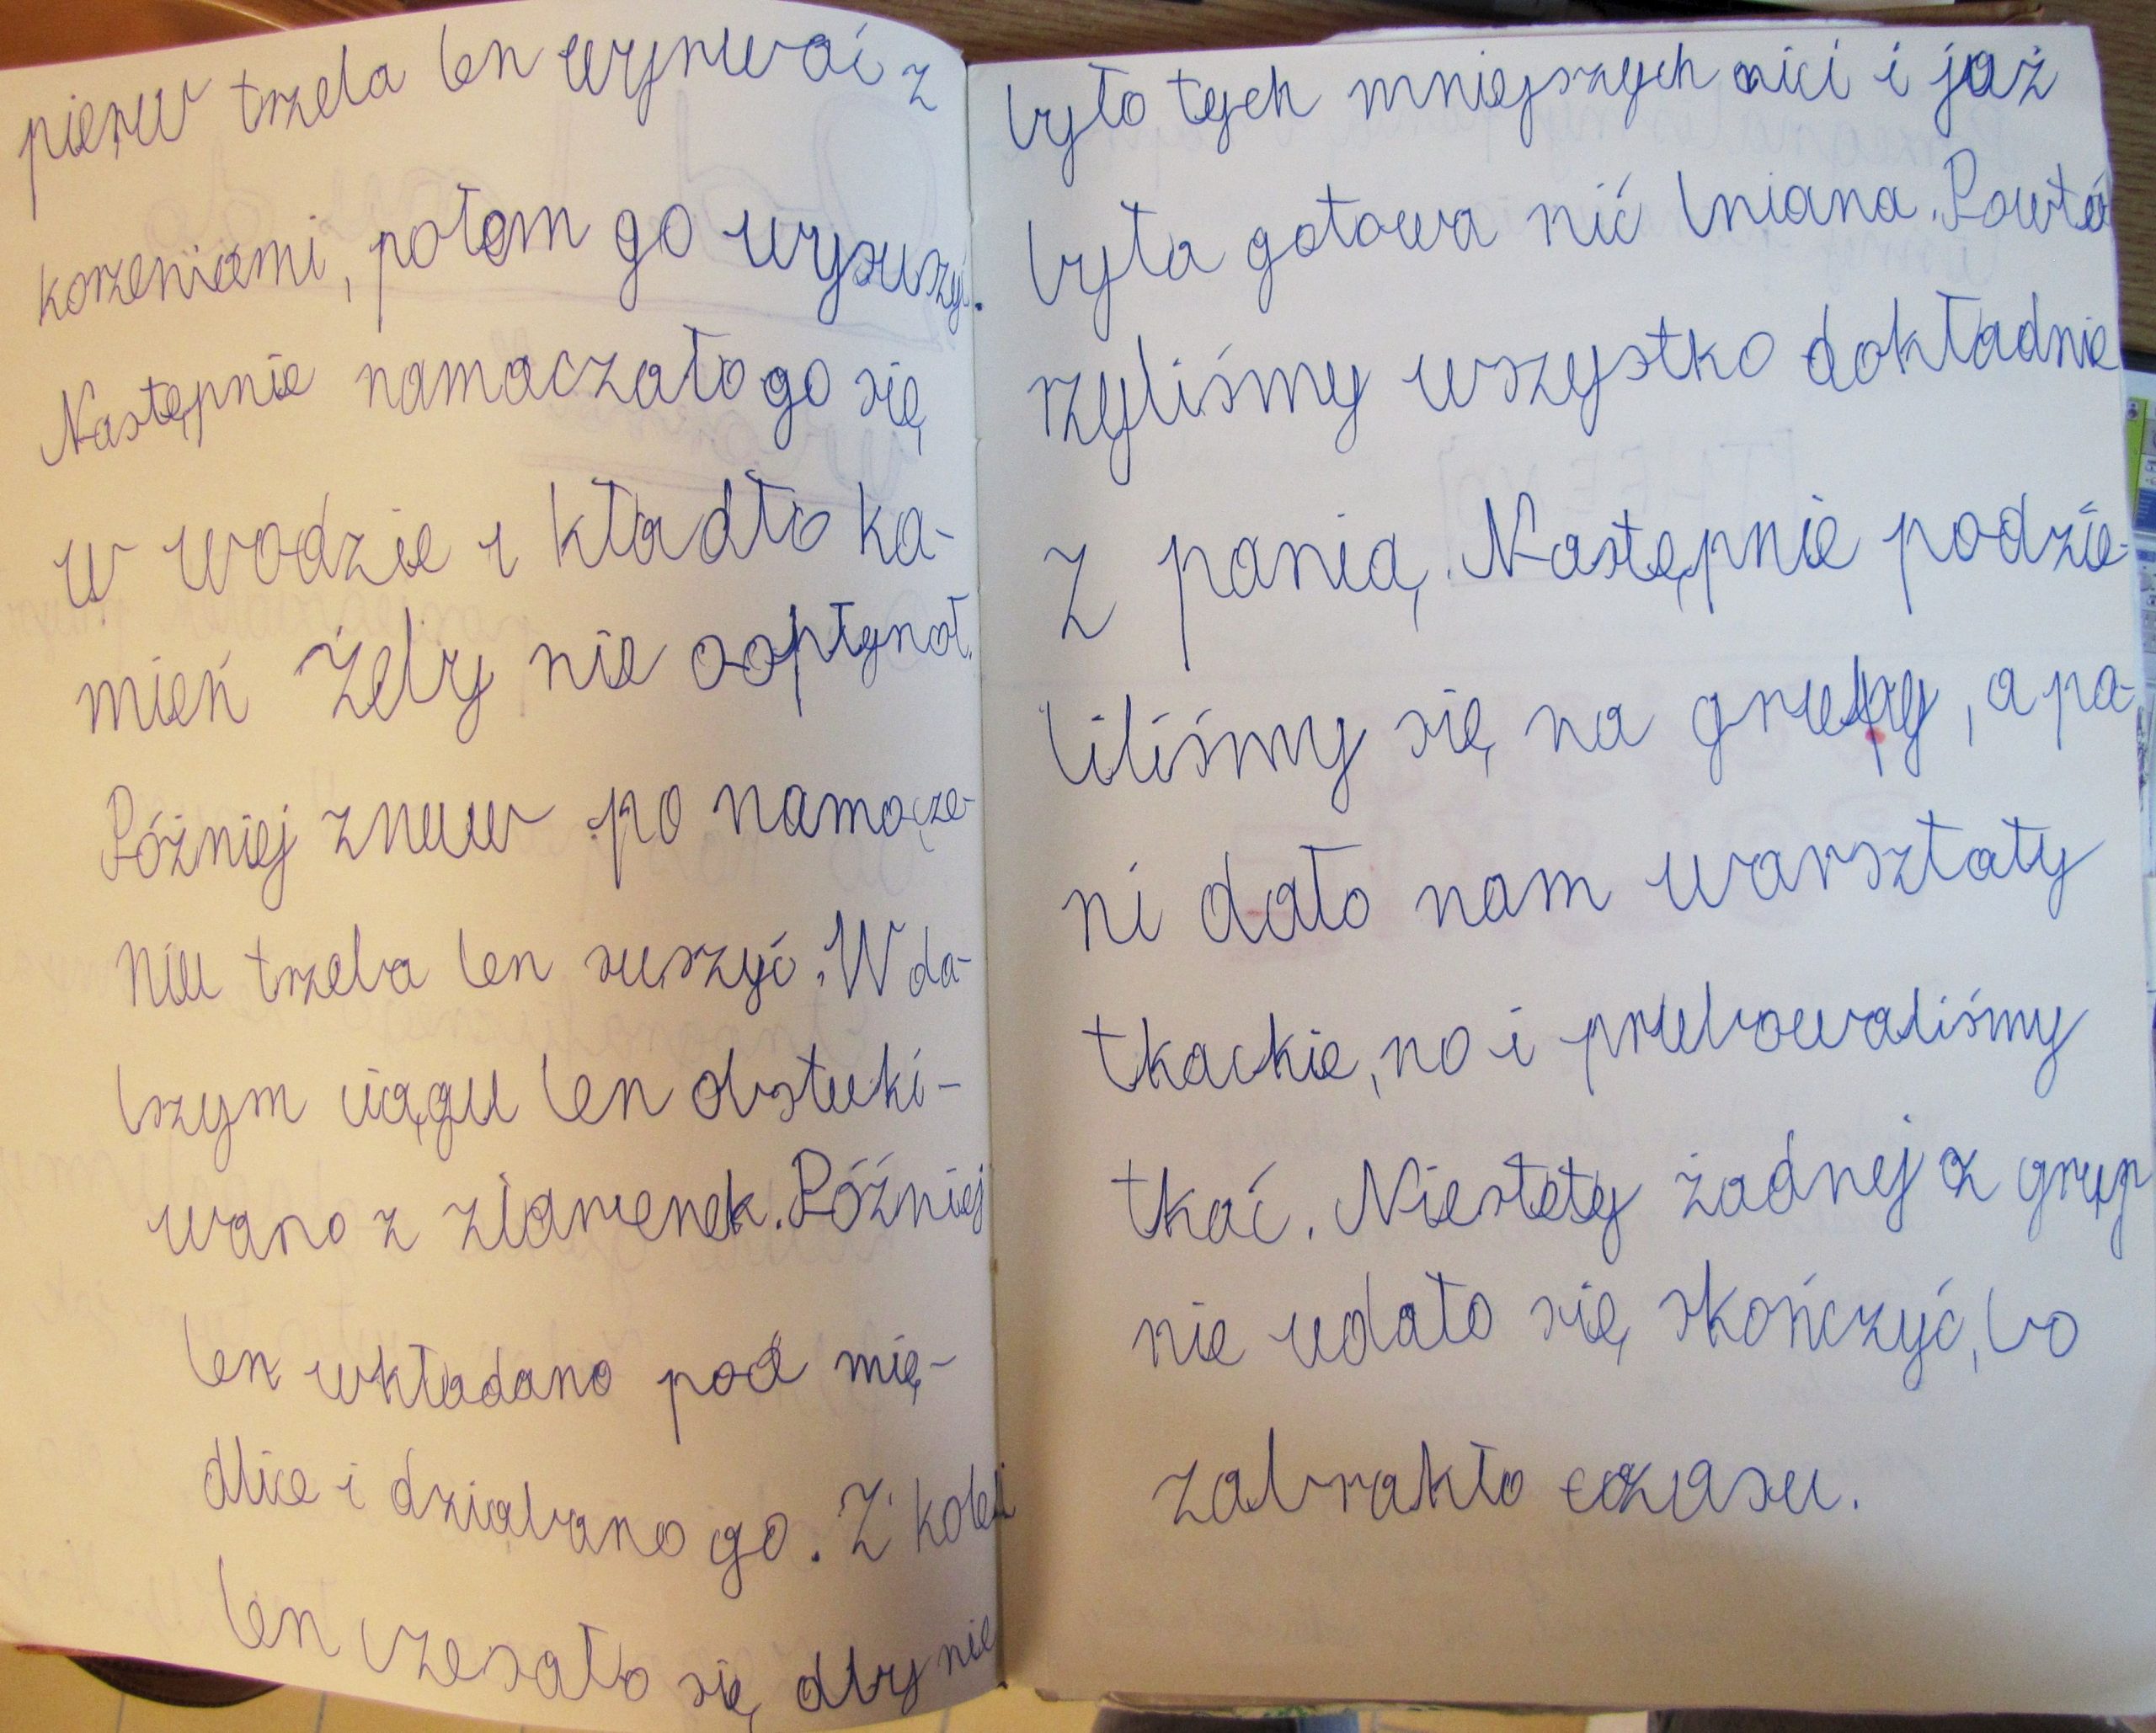 pierw trzeba len wyrwać z
korzeniami, potem go wysuszyć.
Następnie namaczało go się
w wodzie i kładło ka-
mień żeby nie odpłynoł.
Później znuw po namocze-
niu trzeba len suszyć. W da-
lszym ciągu len obstuki-
wano z ziarenek. Później
len wkładano pod mię-
dlice i dziabano go. Z kolei
len czesało się, aby nie
było tych mniejszych nici i już
była gotowa nić lniana. Powtó
rzyliśmy wszystko dokładnie
z panią. Następnie podzie-
liliśmy się na grupy, a pa-
ni dało nam warsztaty
tkackie, no i prubowaliśmy
tkać. Niestety żadnej z grup
nie udało się skończyć, bo
zabrakło czasu.